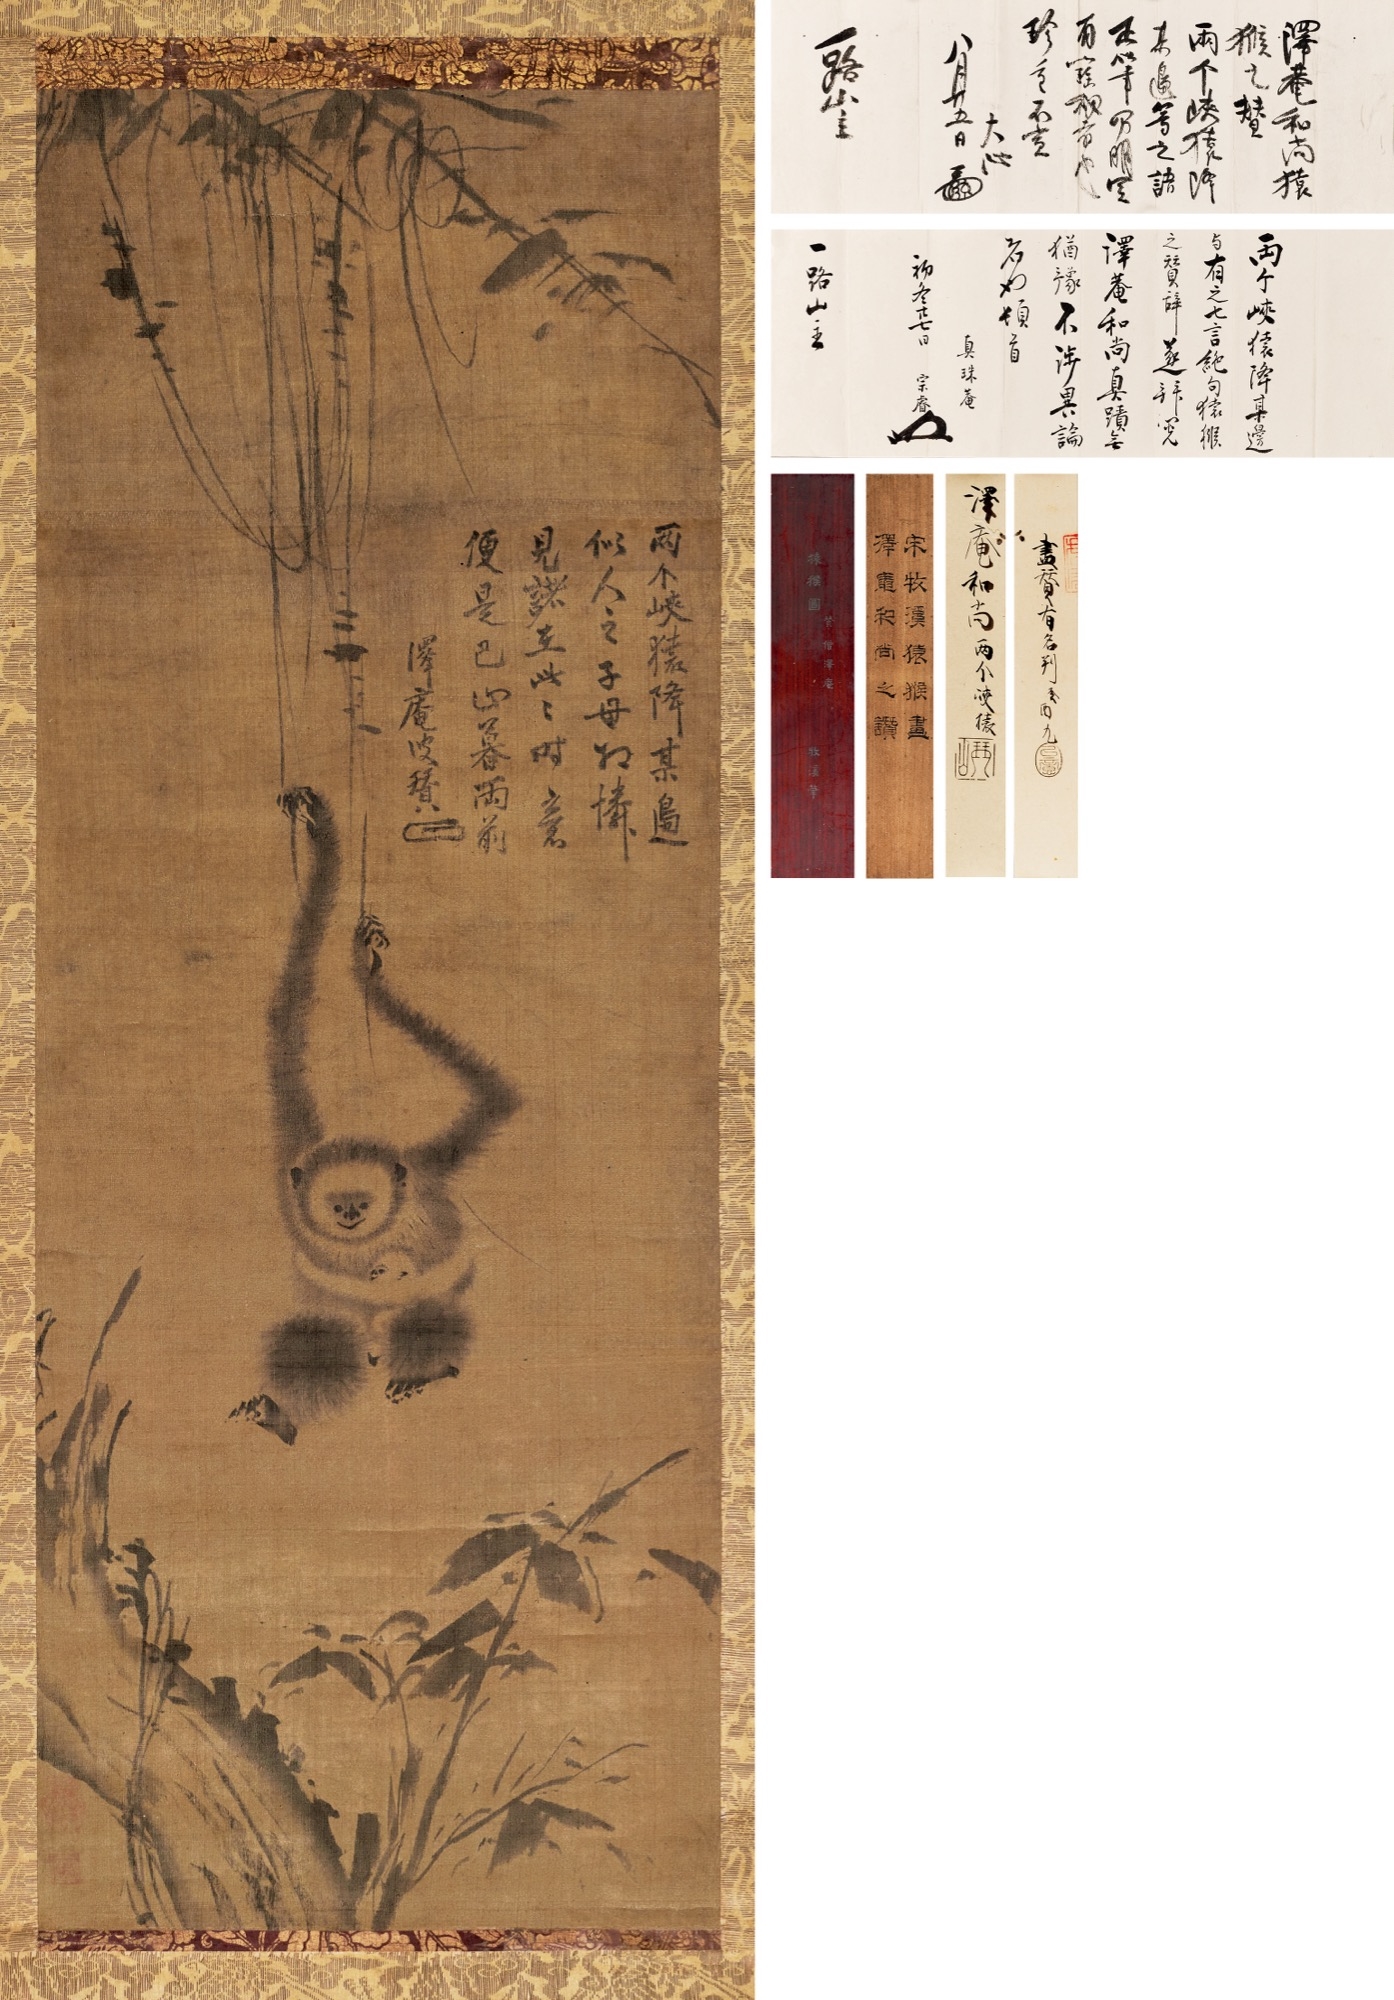 两个峽猿降某邊
似人之子母相憐
見諸在此々時意
便是巴山暮雨前
澤庵叟贊
澤菴和尚猿
猴之贊
兩个峽猿降
某邊等之語
珍重不宣
大心
八月廿五日
一路山主
兩个峽猿降某邊
与有之七言絶句猿猴
之贊辞遂拜覧
澤菴和尚真蹟無
猶豫不涉異論
者也頓首
真珠菴
初冬廿七日 宗睿
一路山主
猿猴圖
賛僧澤庵
牧溪筆
宋牧溪猿猴畫
澤庵和尚之讚
澤庵和尚两个峽猿
畫賛有名判